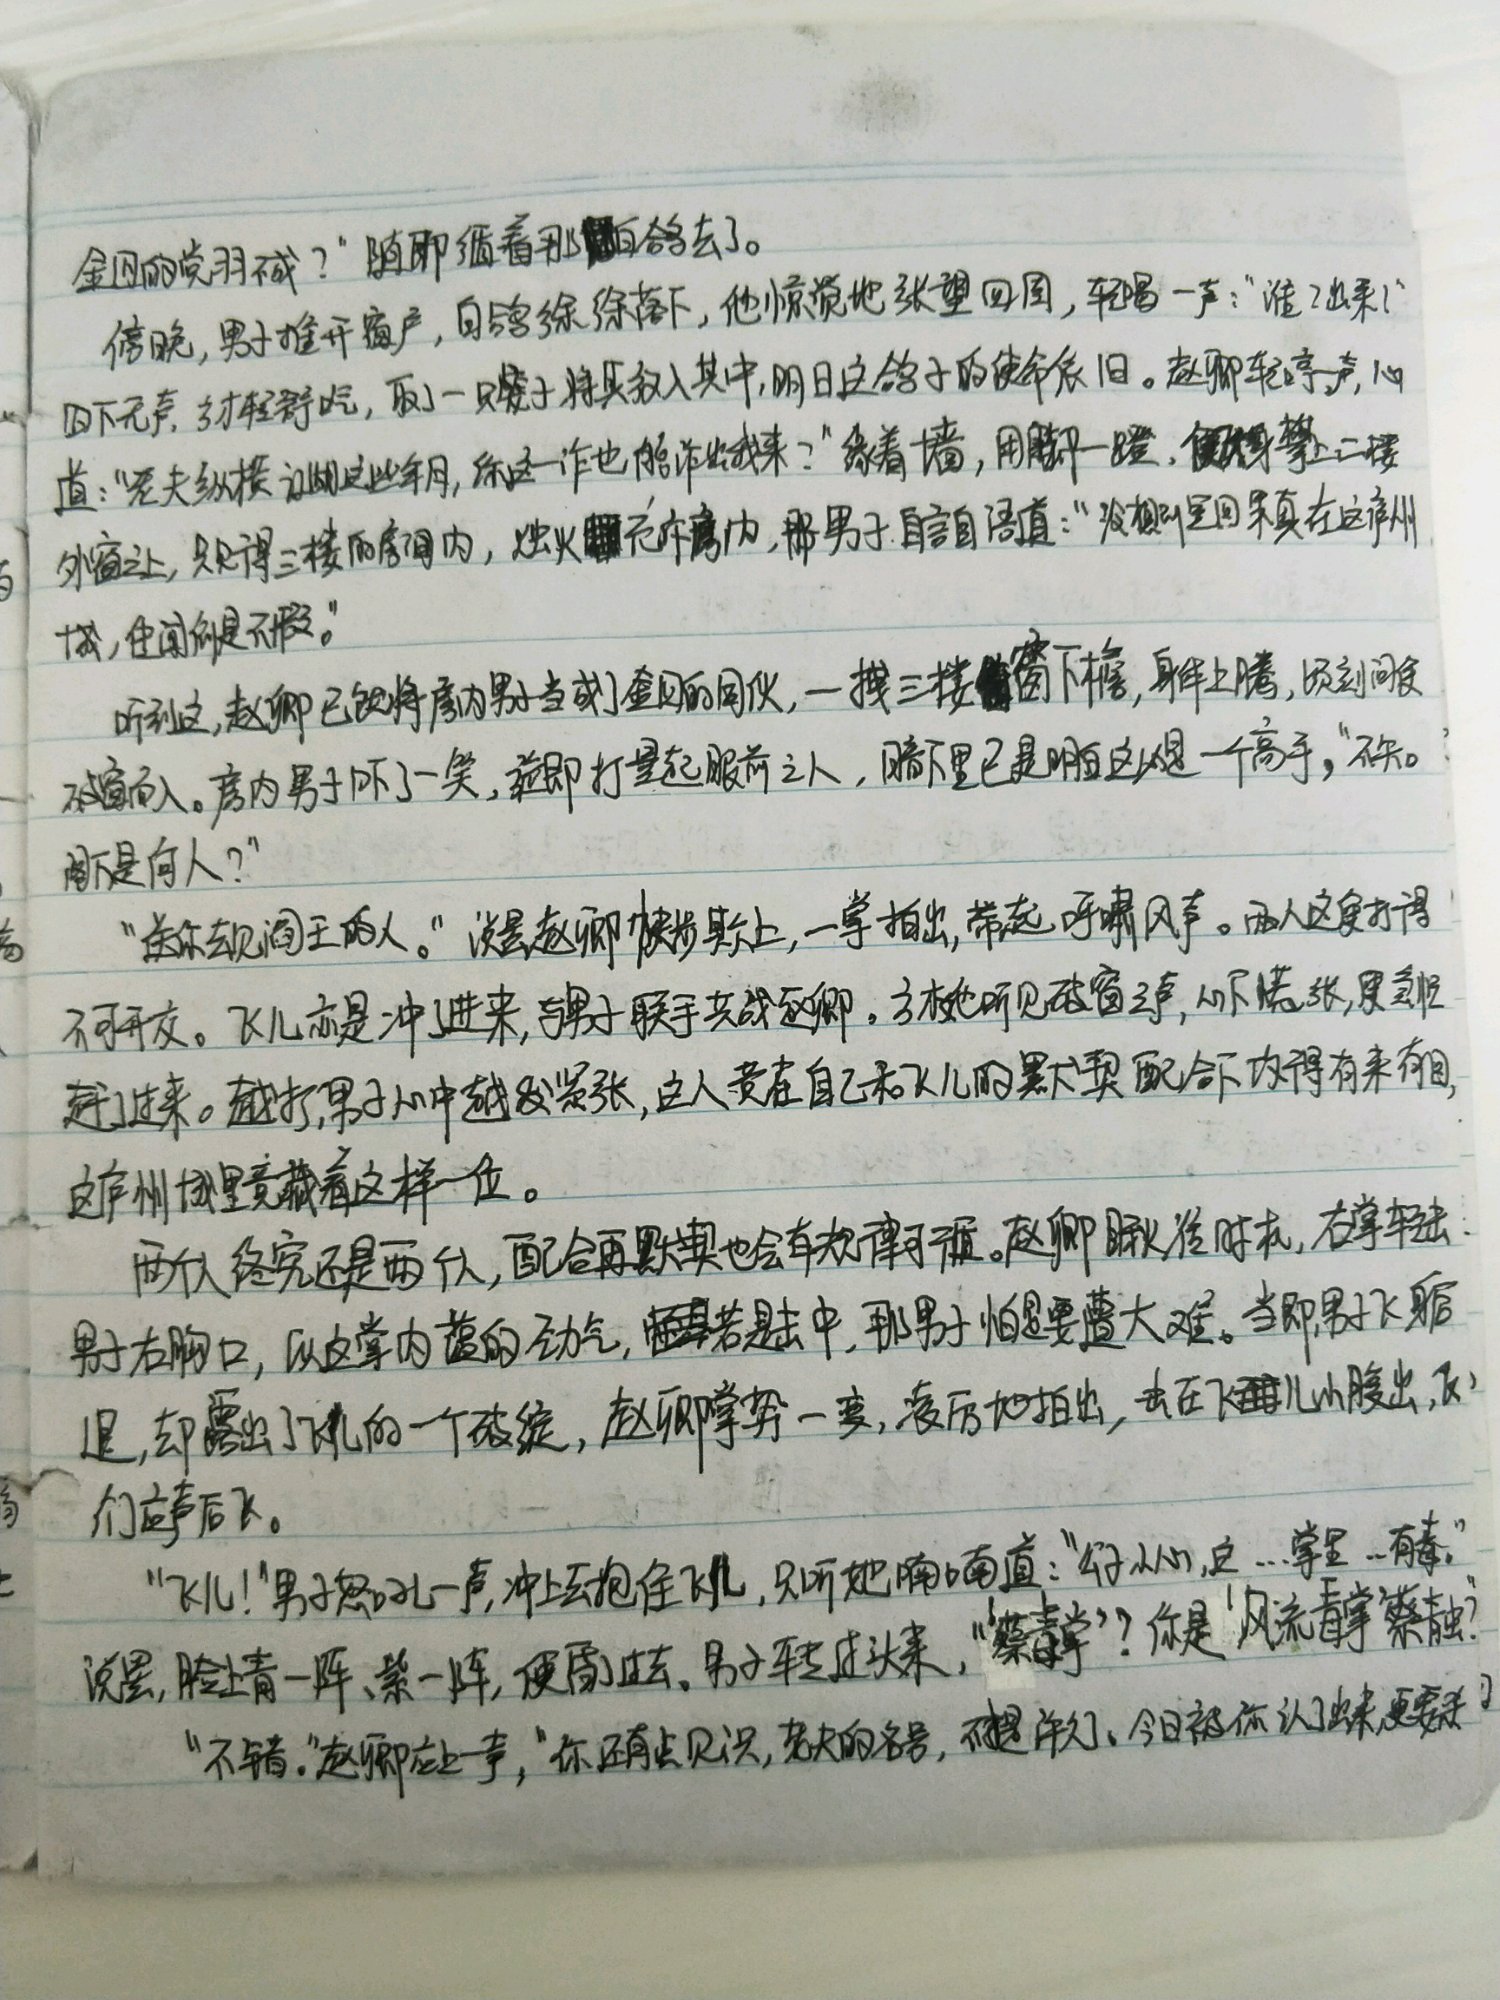 金因的党羽不成？”随即循着那白鸽去了。
傍晚，男子推开窗户，白鸽徐徐落下，他惊觉地张望四周，轻喝一声：“谁？出来！”
四下无声，方才轻舒口气，取了一只笼子将其放入其中，明日这鸽子的使命依旧。赵卿轻哼一声，心
道：“老夫纵横江湖这些年月，你这一诈也能诈出我来？”缘着墙，用脚一蹬，便飞身攀上二楼
外窗之上，只见得三楼的房间内，烛火亮在房内，那男子自言自语道：“没想到金因果真在这庐州
城，传闻倒是不假。”
听到这，赵卿已然将房内男子当成了金因的同伙，一拽三楼窗下檐，身体上腾，顷刻间便
破窗而入。房内男子吓了一笑，旋即打量起眼前之人，暗下里已是明白这人是一个高手，“不知
阁下是何人？”
“送你去见阎王的人。”说罢赵卿快步欺上，一掌拍出，带起呼啸风声。两人这便打得
不可开交。飞儿亦是冲了进来，与男子联手共战赵卿。方才她听见破窗之声，心下慌张，果急忙
赶了过来。越打，男子心中越发紧张，这人竟在自己和飞儿的默契配合下攻得有来有回，
这庐州城里竟藏着这样一位。
两个人终究还是两个人，配合再默契也会有规律可循。赵卿瞅准时机，右掌轻击
男子右胸口，以这掌内蕴的劲气，若是击中，那男子怕是要遭大难。当即，男子飞身后
退，却露出了飞儿的一个破绽，赵卿掌势一变，凌厉地拍出，击在飞儿小腹出，飞
儿应声后飞。
“飞儿！”男子怒吼一声，冲上去抱住飞儿，只听她喃喃道：“公子小心，这…掌里…有毒。”
说罢，脸上青一阵、紫一阵，便昏了过去。男子转过头来，“‘蔡毒掌’？你是‘风流毒掌’蔡融？”
“不错。”赵卿应上一声，“你还有点见识，老夫的名号，不提许久了、今日被你认了出来，更要杀了